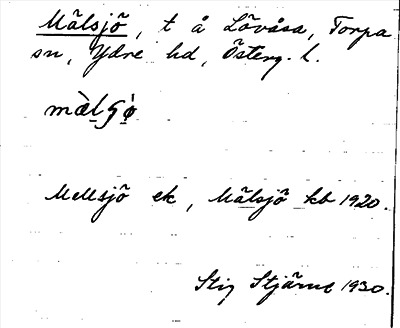 Mälsjö, t å Lövåsa, Torpa
sn, Ydre hd, Österg. l.
mälşö
Mellsjö ek, Mälsjö kb 1920.
Stig Stjärne 1930.